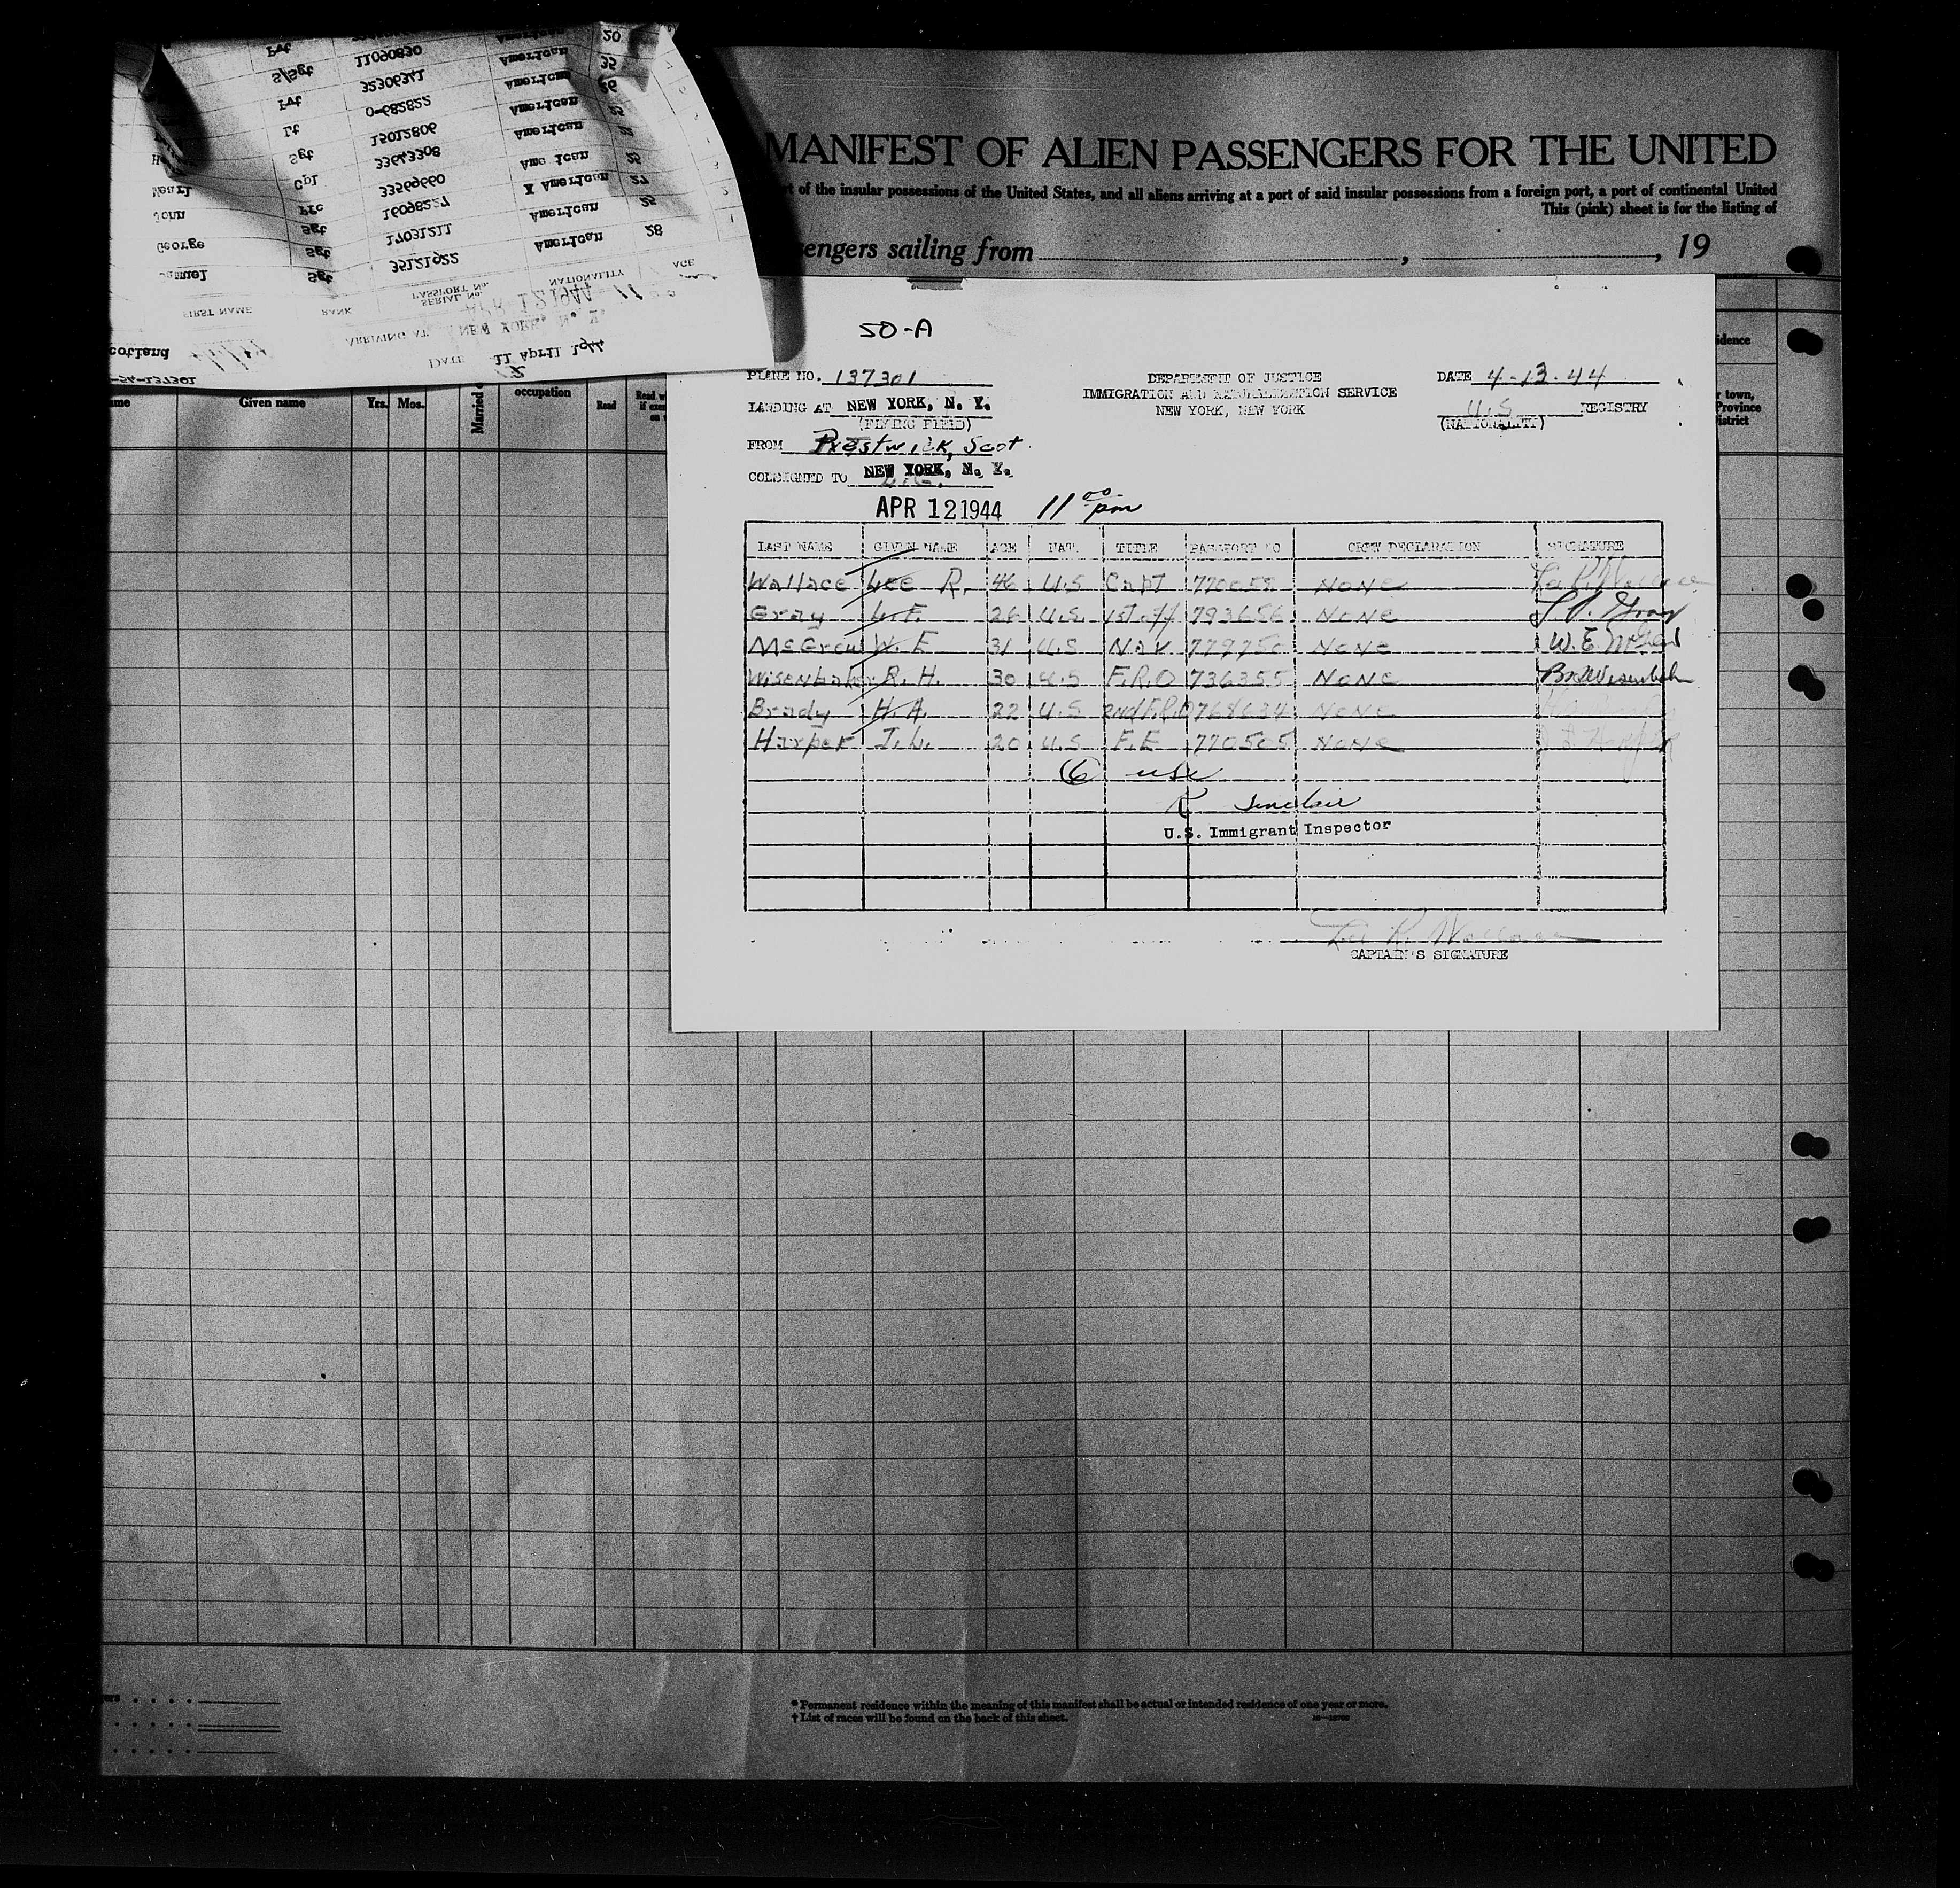 MANIFEST OF ALIEN PASSENGERS FOR THE UNITED
of the insular possessions of the United States, and all aliens arriving at a port of said insular possessions from a foreign port, a port of continental United
This (pink) sheet is for the listing of
sengers sailing from , , 19
Pvt 11090830 American 20
S/Sgt 32306341 American 35
Pvt 0-682822 American 26
Lt 15012806 American 25
Sgt 33643308 American 22
Cpl 33569660 Ame ican 25
John Pfc 16098227 X American 27
George Sgt 17031211 American 25
Samuel Sgt 35121922 American 28
FIRST NAME RANK SERIAL No. PASSPORT No. NATIONALITY AGE
APR 12 1944
ARRIVING AT NEW YORK, N. Y.
cotland DATE 11 April 1944
-54-137301
Given name Yrs. Mos. Married occupation Read
idence
r town,
Province
istrict
50-A
PLANE NO. 137301
LANDING AT NEW YORK, N. Y.
(FLYING FIELD)
FROM Prestwick, Scot.
CONSIGNED TO NEW YORK, N. Y.
DEPARTMENT OF JUSTICE
IMMIGRATION AND NATURALIZATION SERVICE
NEW YORK, NEW YORK
DATE 4-13-44
U.S REGISTRY
(NATIONALITY)
APR 12 1944 11 00 pm
LAST NAME GIVEN NAME AGE NAT. TITLE PASSPORT NO CREW DECLARATION SIGNATURE
Wallace Lee R. 46 U.S Capt 770058 NONE Lee R. Wallace
Gray L.F. 26 U.S. 1st off 793656 NONE
McGrew W. E 31 U.S Nav NONE
Wisenbaker R. H. 30 U.S F.R.O 736355 NONE
Brady H. A. 22 U.S 2nd F.R.O 768634 NONE
Harper J. L. 20 U.S F.E 770505 NONE
6 usc
R Sinclair
U.S. Immigrant Inspector
Lee R. Wallace
CAPTAIN'S SIGNATURE
* Permanent residence within the meaning of this manifest shall be actual or intended residence of one year or more.
† List of races will be found on the back of this sheet.